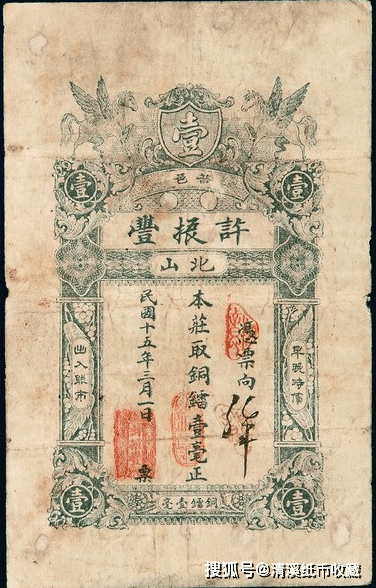 壹
普邑
壹
壹
許振豐
北山
早晚時價
憑票向
本莊取銅鐳壹毫正
民國十五年三月一日
票
出入照市
壹
壹
銅鐳壹毫
搜狐号@清溪纸币收藏